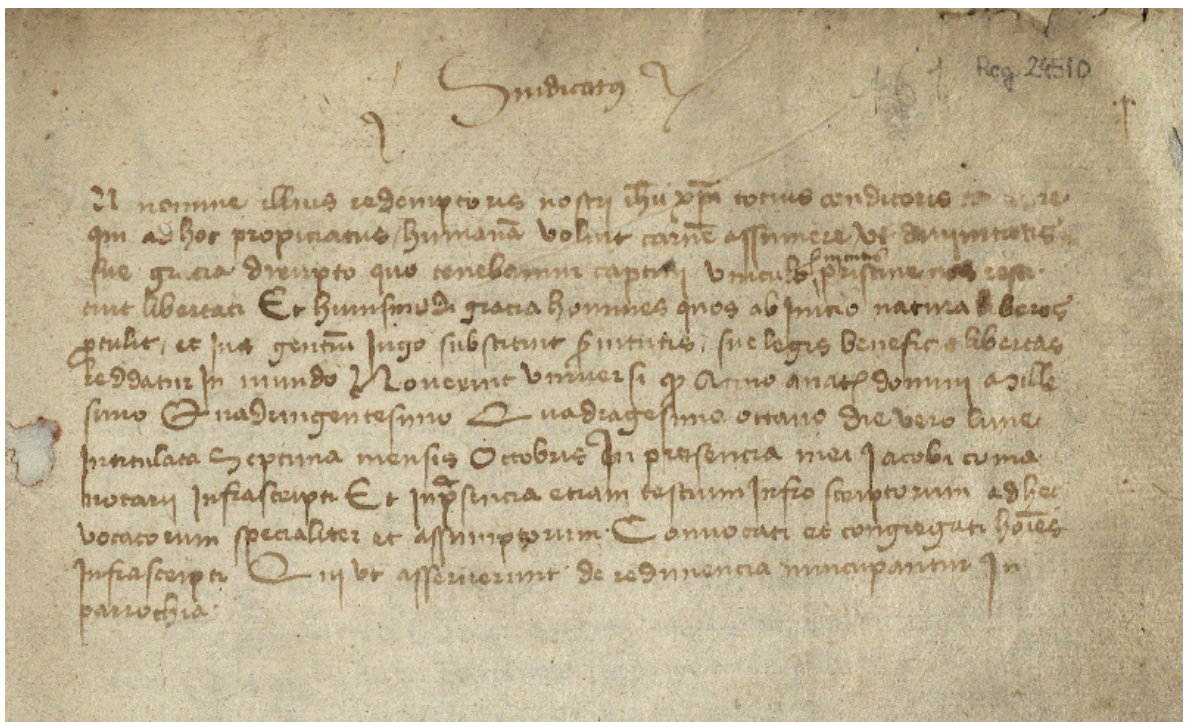 Sindicatus
Reg. 24510
161
N nomine illius redemptoris nostri ihu xpi tocius conditoris re
qui ad hoc propiciatus humanã voluit carnẽ assumere vt divinitatis
sue gracia dirupto quo tenebamur captivi vinculo pristine nos resti
tuit libertati Et huiusmodi gracia homines quos ab inicio natura liberos
ptulit, et ius gentiũ iugo substituit servitutis, sue legis beneficio libertas
reddatur in mundo Noverint vniversi qp Anno a natꝭ domini Mille
simo Quadringentesimo Quadragesimo octavo die vero lune
Intitulata Septima mensis Octobris In presencia mei Jacobi coma
notarii Infrascripti Et In psencia etiam testium Infra scriptorum ad hec
vocatorum specialiter et assumptorum Convocati et congregati hoĩes
Infrascripti Qui vt asseruerunt de redimencia nuncupantur In
parrochia